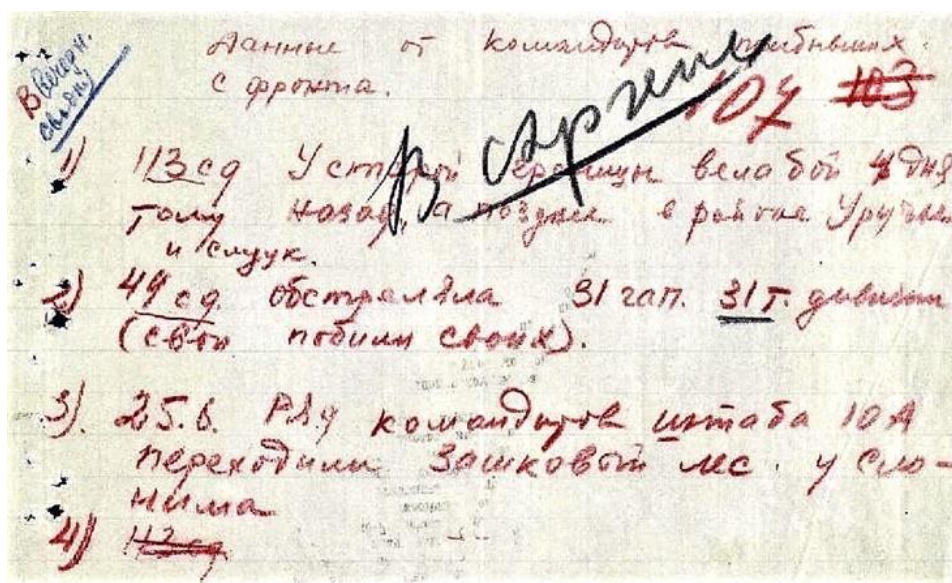 В вечерн. сводку
Данные от командиров прибывших
с фронта.
107 103
В Архив
1) 113 сд У старой границы вела бой 4 дня
тому назад, а позднее в районе Уручье
и Слуцк.
2) 49 сд обстреляла 31 гап. 31 т. дивизии
(свои побили своих).
3). 25.6. Ряд командиров штаба 10 А
переходили Зашковый лес. у Сло-
нима
4) 113 сд